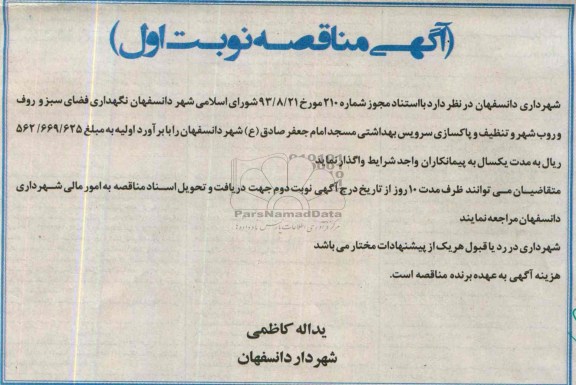 (آگهی مناقصه نوبت اول)
شهرداری دانسفهان در نظر دارد بااستناد مجوز شماره ۲۱۰ مورخ ۹۳/۸/۲۱ شورای اسلامی شهر دانسفهان نگهداری فضای سبز و روف
وروب شهر و تنظیف و پاکسازی سرویس بهداشتی مسجد امام جعفر صادق (ع) شهر دانسفهان را با برآورد اولیه به مبلغ ۵۶۲/۶۶۹/۶۲۵
ریال به مدت یکسال به پیمانکاران واجد شرایط واگذار نماید
متقاضیان می توانند ظرف مدت ۱۰ روز از تاریخ درج آگهی نوبت دوم جهت دریافت و تحویل اسناد مناقصه به امور مالی شهرداری
دانسفهان مراجعه نمایند
شهرداری در رد یا قبول هر یک از پیشنهادات مختار می باشد
هزینه آگهی به عهده برنده مناقصه است.
یداله کاظمی
شهردار دانسفهان
ParsNamadData